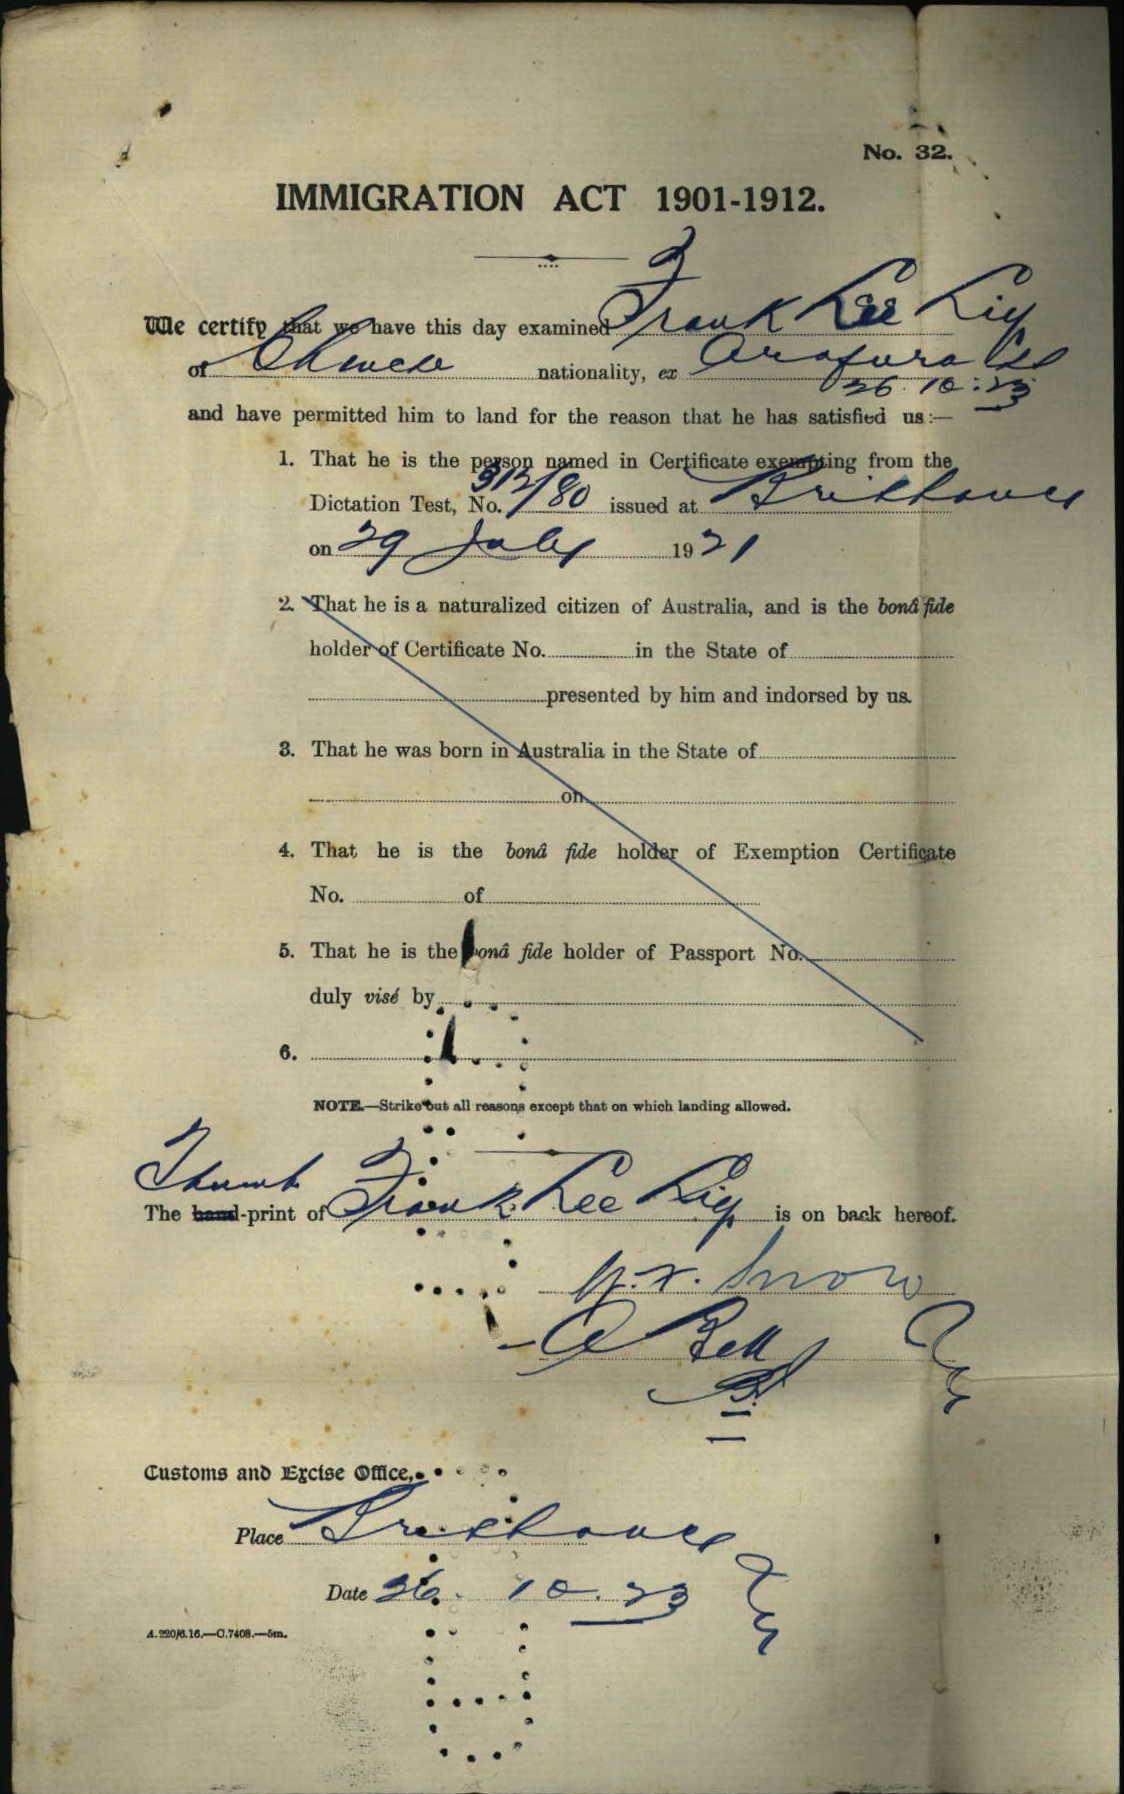 No. 32.
IMMIGRATION ACT 1901-1912.
We certify that we have this day examined Frank Lee Lip
of Chinese nationality, ex Arafura
26.10.23
and have permitted him to land for the reason that he has satisfied us:—
1. That he is the person named in Certificate exempting from the
Dictation Test, No. 312/80 issued at Brisbane
on 29 July 1921
2. That he is a naturalized citizen of Australia, and is the bonâ fide
holder of Certificate No. in the State of
presented by him and indorsed by us.
3. That he was born in Australia in the State of
on
4. That he is the bonâ fide holder of Exemption Certificate
No. of
5. That he is the bonâ fide holder of Passport No.
duly visé by
6.
NOTE.—Strike out all reasons except that on which landing allowed.
Thumb
The hand-print of Frank Lee Lip is on back hereof.
Snow
A Bell
Customs and Excise Office,
Place Brisbane
Date 26.10.23
A.220/6.16.—C.7408.—5m.